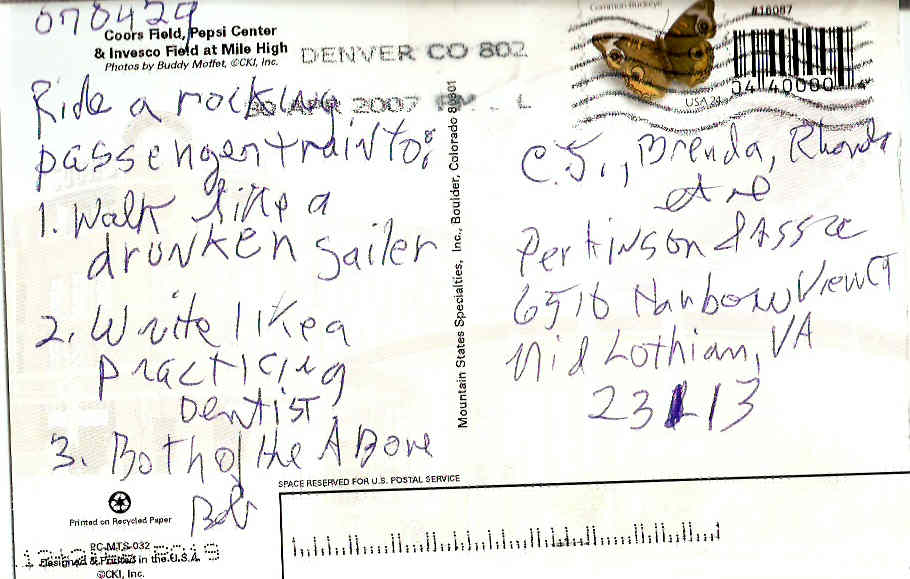 070429
Coors Field, Pepsi Center
& Invesco Field at Mile High
Photos by Buddy Moffet, ©CKI, Inc.
DENVER CO 802
APR 2007 PM L
Ride a rocking
passenger train to:
1. Walk like a
drunken sailer
2. Write like a
practicing
Dentist
3. Both of the Above
Bob
Printed on Recycled Paper
PC-MTS-032
Designed & Printed in the U.S.A.
©CKI, Inc.
Mountain States Specialties, Inc., Boulder, Colorado 80301
Common Buckeye
USA 24
#16087
04 40000 4
C.J., Brenda, Rhonda
et al
Perkinson & Assoc
6510 Harbour View Ct
Mid Lothian, VA
23113
SPACE RESERVED FOR U.S. POSTAL SERVICE